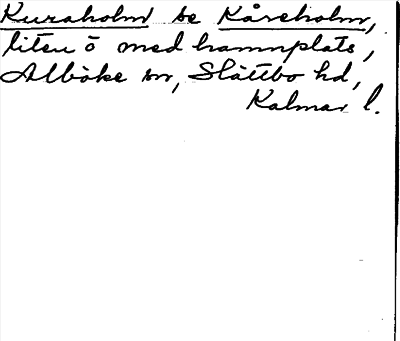 Kuraholm se Kåreholm,
liten ö med hamnplats,
Alböke sn, Slättbo hd,
Kalmar l.